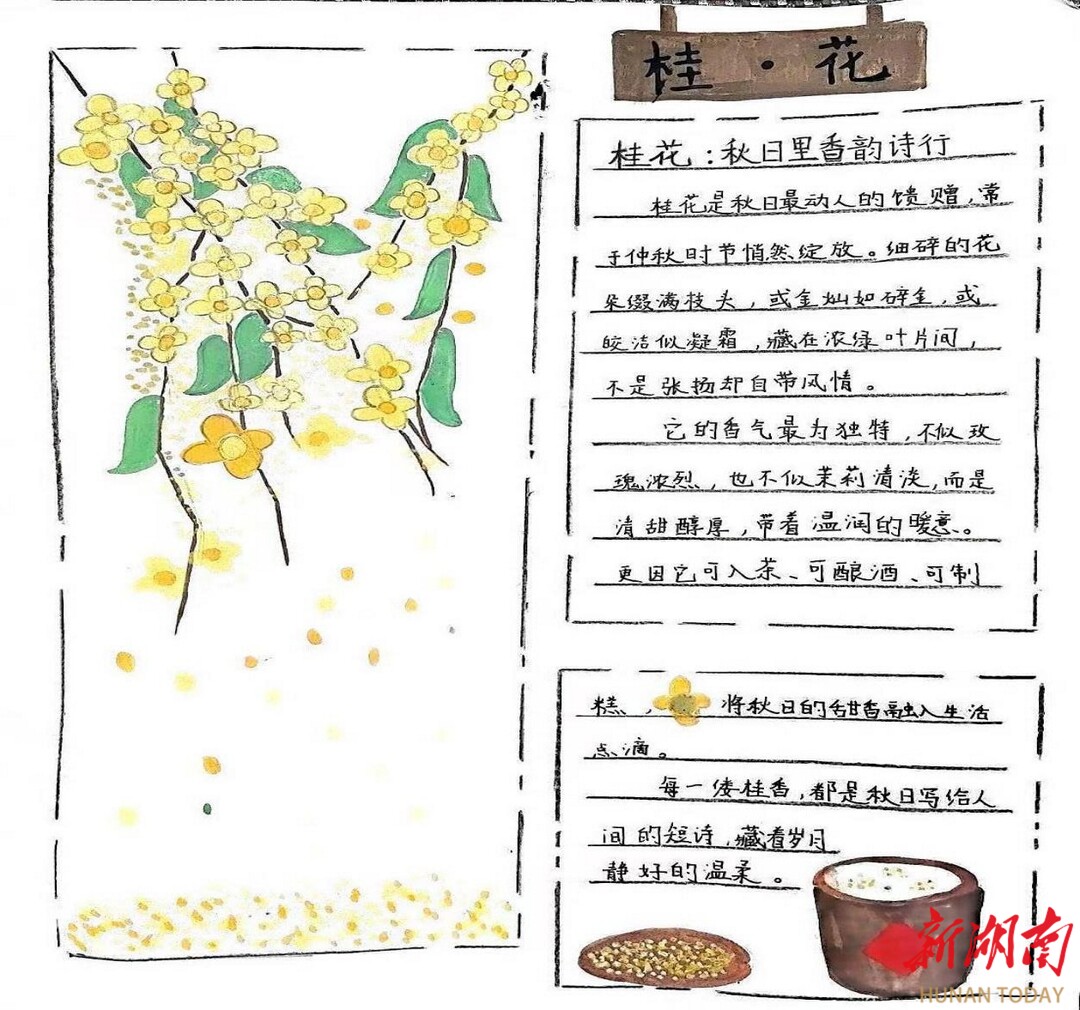 桂·花
桂花：秋日里香韵诗行
桂花是秋日最动人的馈赠，常
于仲秋时节悄然绽放。细碎的花
朵缀满枝头，或金灿如碎金，或
皎洁似凝霜，藏在浓绿叶片间，
不是张扬却自带风情。
它的香气最为独特，不似玫
瑰浓烈，也不似茉莉清淡，而是
清甜醇厚，带着温润的暖意。
更因它可入茶、可酿酒、可制
糕，将秋日的甜香融入生活
点滴。
每一缕桂香，都是秋日写给人
间的短诗，藏着岁月
静好的温柔。
新湖南
HUNAN TODAY